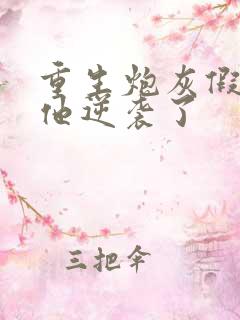 重生炮灰假
他逆袭了
三把伞